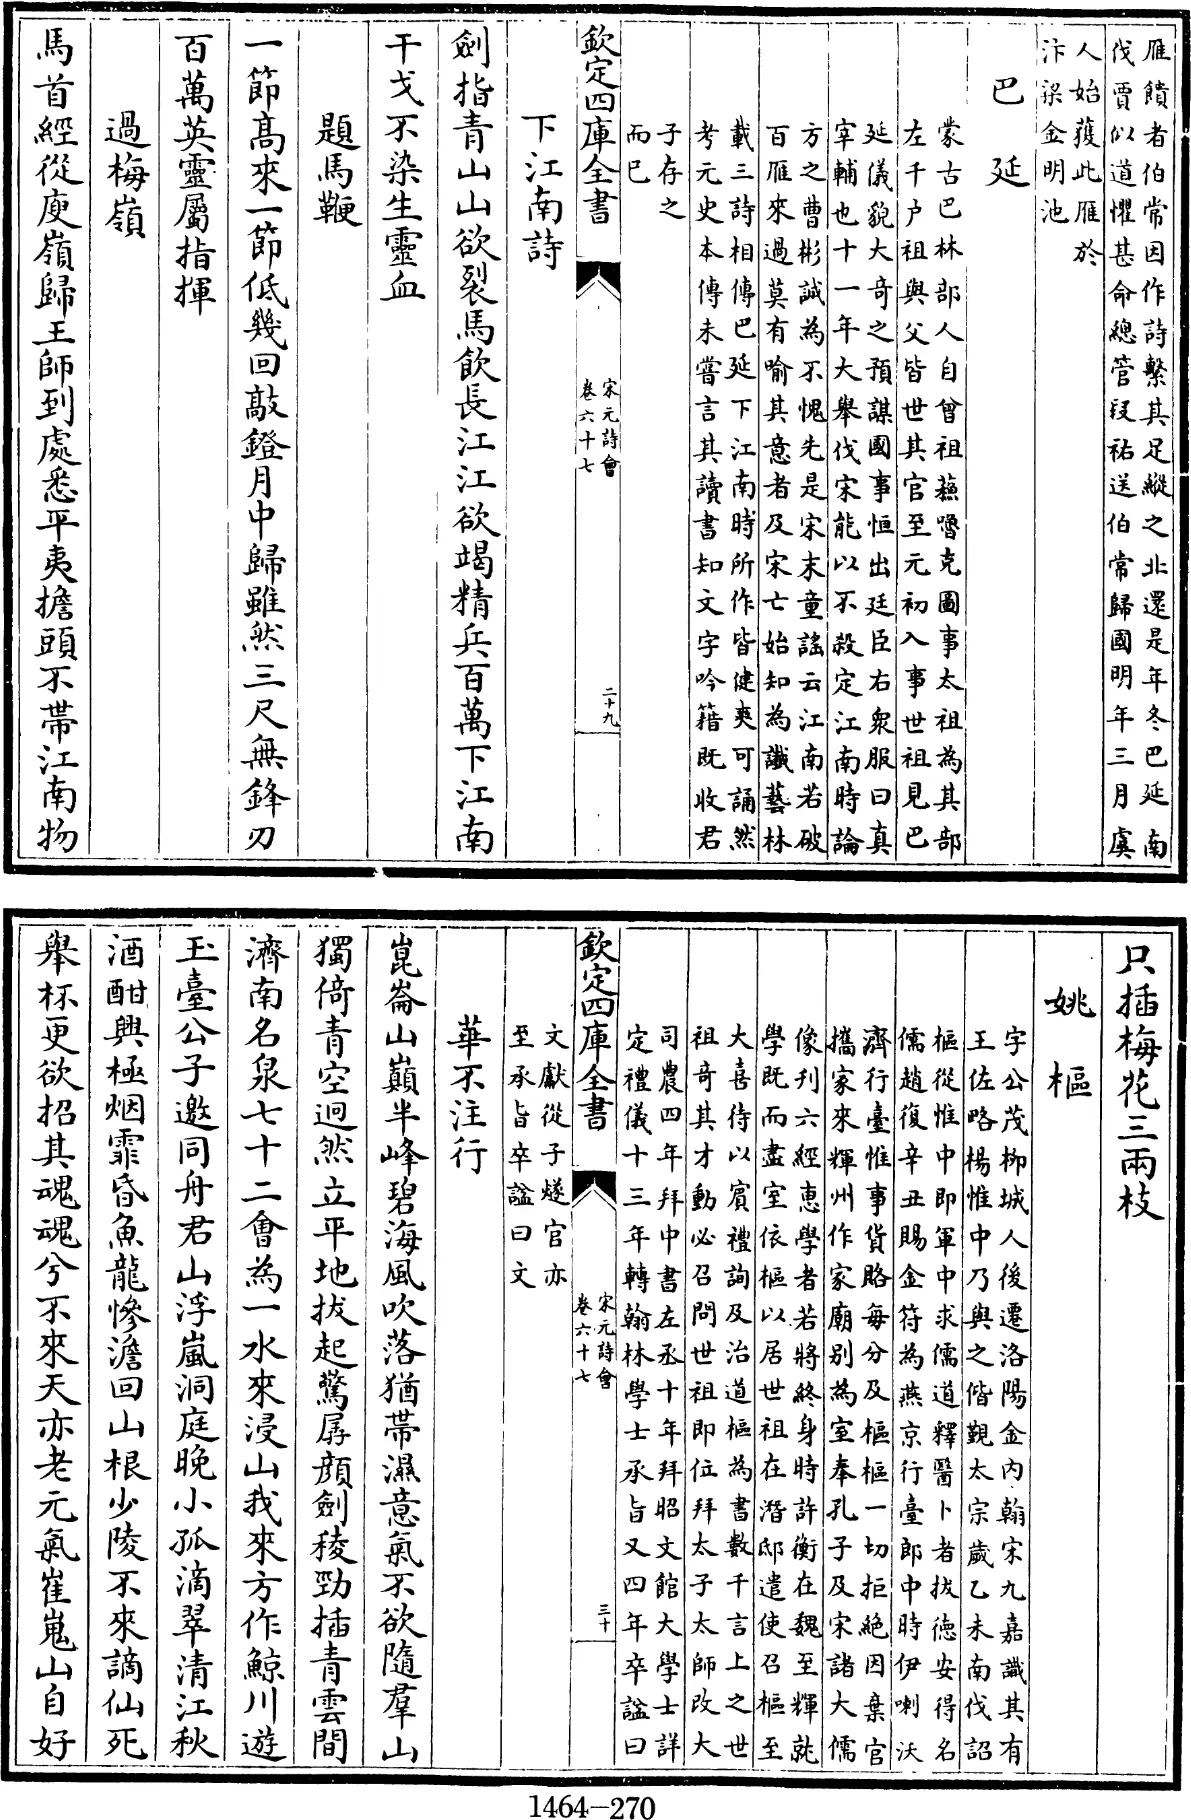 雁饋者伯常因作詩繫其足縱之北還是年冬巴延南
伐賈似道懼甚命總管段祐送伯常歸國明年三月虞
人始獲此雁於
汴梁金明池
巴延
蒙古巴林部人自曾祖蘓嚕克圖事太祖為其部
左千户祖與父皆世其官至元初入事世祖見巴
延儀貌大奇之預謀國事恒出廷臣右衆服曰真
宰輔也十一年大舉伐宋能以不殺定江南時論
方之曹彬誠為不愧先是宋末童謠云江南若破
百雁來過莫有喻其意者及宋亡始知為讖藝林
載三詩相傳巴延下江南時所作皆健爽可誦然
考元史本傳未嘗言其讀書知文字吟籍既收君
子存之
而已
欽定四庫全書
宋元詩會
卷六十七
二十九
下江南詩
劍指青山山欲裂馬飲長江江欲竭精兵百萬下江南
干戈不染生靈血
題馬鞭
一節髙來一節低幾回敲鐙月中歸雖然三尺無鋒刃
百萬英靈屬指揮
過梅嶺
馬首經從庾嶺歸王師到處悉平夷擔頭不帶江南物
只插梅花三兩枝
姚樞
字公茂栁城人後遷洛陽金内翰宋九嘉識其有
王佐略楊惟中乃與之偕覲太宗歲乙未南伐詔
樞從惟中即軍中求儒道釋醫卜者拔德安得名
儒趙復辛丑賜金符為燕京行臺郎中時伊喇沃
濟行臺惟事貨賂每分及樞樞一切拒絶因棄官
攜家來輝州作家廟别為室奉孔子及宋諸大儒
像刋六經惠學者若將終身時許衡在魏至輝就
學既而盡室依樞以居世祖在潛邸遣使召樞至
大喜待以賔禮詢及治道樞為書數千言上之世
祖竒其才動必召問世祖即位拜太子太師改大
司農四年拜中書左丞十年拜昭文館大學士詳
定禮儀十三年轉翰林學士承旨又四年卒諡曰
欽定四庫全書
宋元詩會
卷六十七
三十
文獻從子燧官亦
至承旨卒諡曰文
華不注行
崑崙山巔半峰碧海風吹落猶帶濕意氣不欲隨羣山
獨倚青空迥然立平地拔起驚孱顔劍稜勁插青雲間
濟南名泉七十二會為一水來浸山我來方作鯨川遊
玉臺公子邀同舟君山浮嵐洞庭晚小孤滴翠清江秋
酒酣興極烟霏昏魚龍慘澹回山根少陵不來謫仙死
舉杯更欲招其魂魂兮不來天亦老元氣崔嵬山自好
1464—270